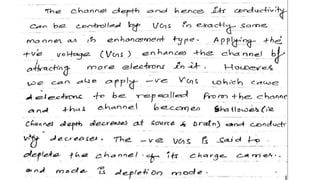 The channel depth and hence Its conductivity
can be controlled by VGS in exactly same
manner as in enhancement type. Applying the
+ve voltage (VGS) enhances the channel by
attracting more electrons in it. However
we can also apply -ve VGS which cause
electrons to be repealled from the channe
and thus channel becomes shallower (ie
channel depth decreases at source & drain) and conducti
vity decreases. The -ve VGS is said to
deplete the channel of its charge carrier.
and mode is depletion mode.